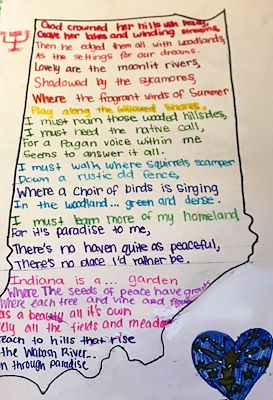 God crowned her hills with beauty,
Gave her lakes and winding streams,
Then he edged them all with woodlands
As the settings for our dreams.
Lovely are the moonlit rivers,
Shadowed by the sycamores,
Where the fragrant winds of Summer
Play along the willowed shores.
I must roam those wooded hillsides,
I must heed the native call,
For a Pagan voice within me
Seems to answer it all.
I must walk where squirrels scamper
Down a rustic old fence,
Where a choir of birds is singing
In the woodland... green and dense.
I must learn more of my homeland
For it's paradise to me,
There's no haven quite as peaceful,
There's no place I'd rather be.
Indiana is a... garden
Where The seeds of peace have grown
Where each tree and vine and flower
as a beauty all it's own
ely all the fields and meadow
reach to hills that rise
the Wabash River...
n through paradise